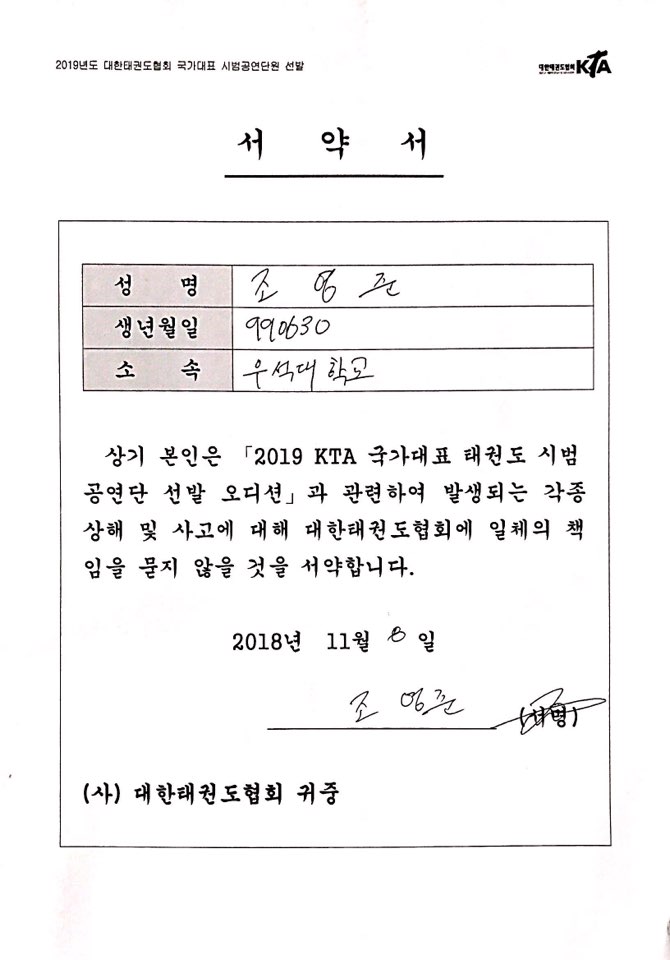 2019년도 대한태권도협회 국가대표 시범공연단원 선발
대한태권도협회 KTA
서 약 서
성 명 조 영 준
생년월일 990630
소 속 우석대학교
상기 본인은 「2019 KTA 국가대표 태권도 시범
공연단 선발 오디션」과 관련하여 발생되는 각종
상해 및 사고에 대해 대한태권도협회에 일체의 책
임을 묻지 않을 것을 서약합니다.
2018년 11월 8일
조 영준 (서명)
(사) 대한태권도협회 귀중